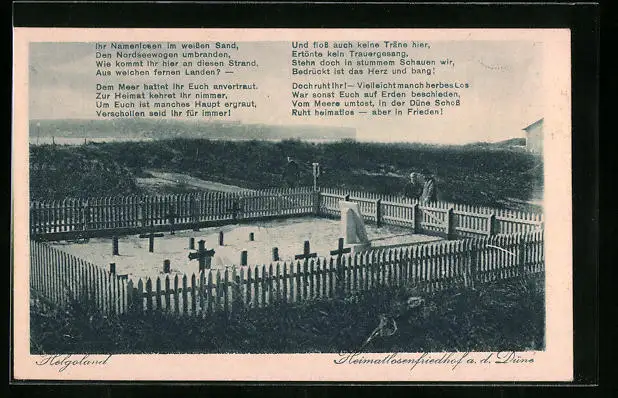 Ihr Namenlosen im weißen Sand,
Den Nordseewogen umbranden,
Wie kommt Ihr hier an diesen Strand,
Aus welchen fernen Landen? —
Dem Meer hattet Ihr Euch anvertraut.
Zur Heimat kehret Ihr nimmer,
Um Euch ist manches Haupt ergraut,
Verschollen seid Ihr für immer!
Und floß auch keine Träne hier,
Ertönte kein Trauergesang,
Stehn doch in stummem Schauen wir,
Bedrückt ist das Herz und bang!
Doch ruht Ihr! — Vielleicht manch herbes Los
War sonst Euch auf Erden beschieden,
Vom Meere umtost, in der Düne Schoß
Ruht heimatlos — aber in Frieden!
Helgoland
Heimatlosenfriedhof a. d. Düne